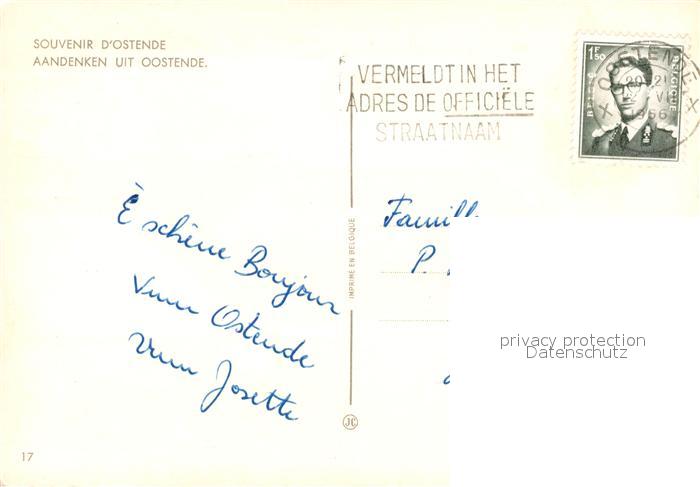 SOUVENIR D'OSTENDE
AANDENKEN UIT OOSTENDE.
VERMELDT IN HET
ADRES DE OFFICIËLE
STRAATNAAM
1F50
BELGIE
BELGIQUE
OOSTENDE
1966
È schéne Bonjour
vum Ostende
vum Josette
Famill
P.
IMPRIMÉ EN BELGIQUE
JC
privacy protection
Datenschutz
17